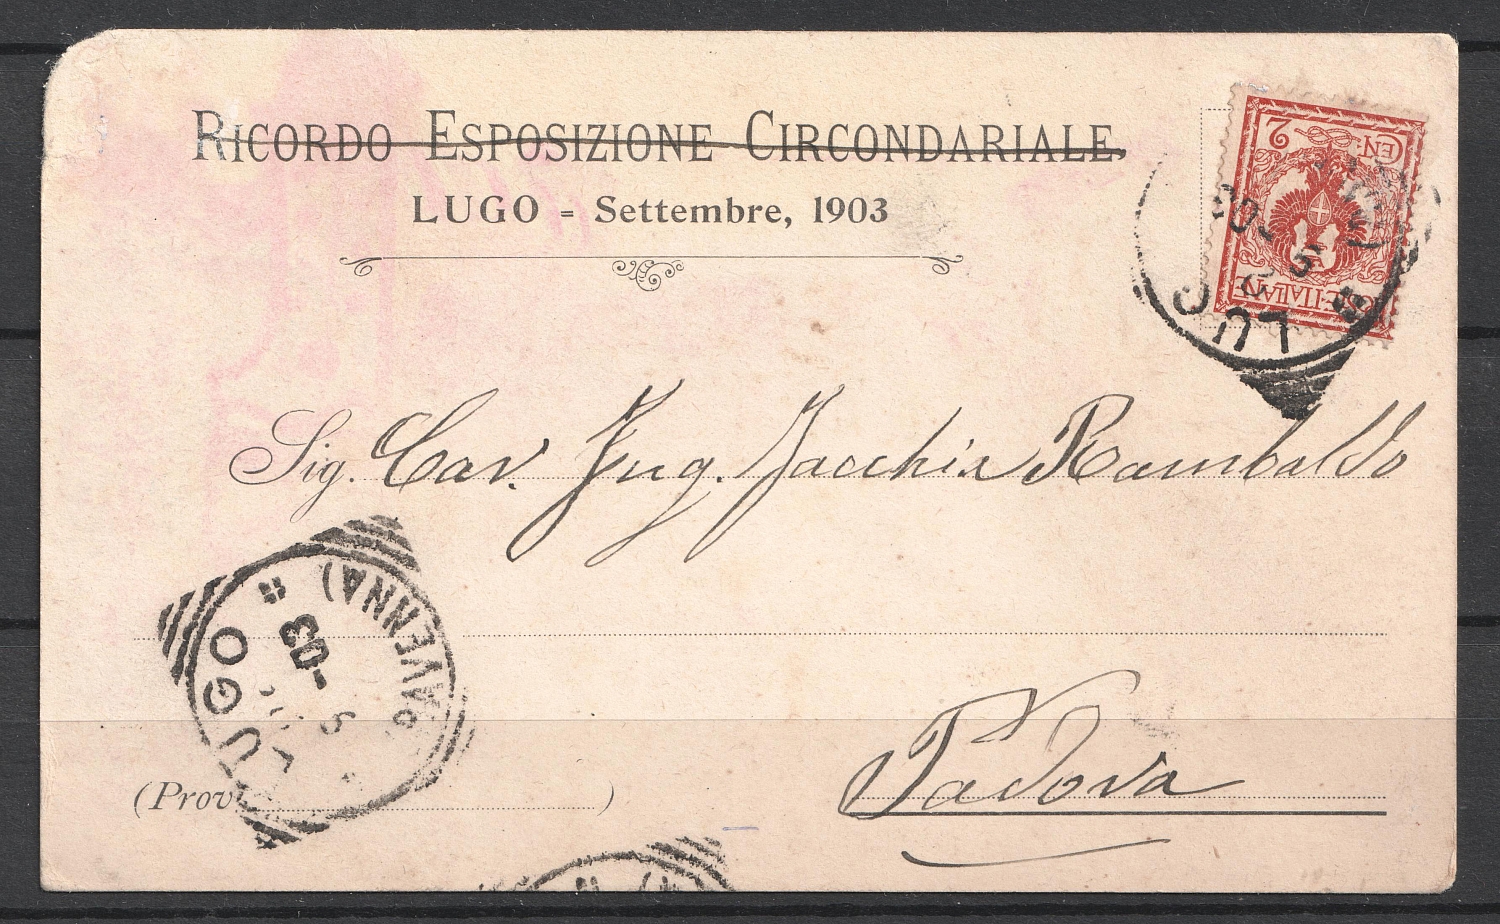 RICORDO ESPOSIZIONE CIRCONDARIALE,
LUGO = Settembre, 1903
CEN: 2
POSTE ITALIANE
LUG
Sig. Cav. Ing. Jacchia Rambaldo
LUGO
(RAVENNA)
5
-03
Padova
(Prov )